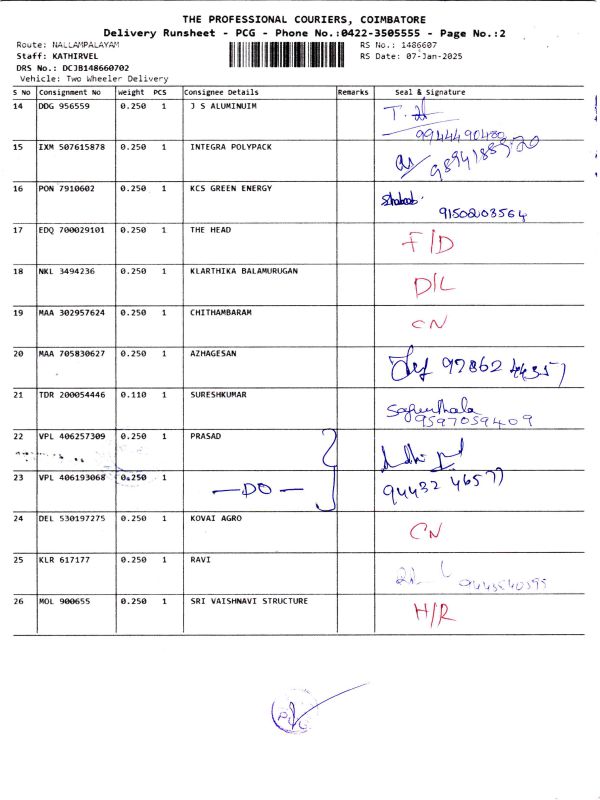 THE PROFESSIONAL COURIERS, COIMBATORE
Delivery Runsheet - PCG - Phone No.:0422-3505555 - Page No.:2
Route: NALLAMPALAYAM RS No.: 1486607
Staff: KATHIRVEL RS Date: 07-Jan-2025
DRS No.: DCJB148660702
Vehicle: Two Wheeler Delivery
S No Consignment No Weight PCS Consignee Details Remarks Seal & Signature
14 DDG 956559 0.250 1 J S ALUMINUIM
9944490480
15 IXM 507615878 0.250 1 INTEGRA POLYPACK
16 PON 7910602 0.250 1 KCS GREEN ENERGY
9150203564
17 EDQ 700029101 0.250 1 THE HEAD F/D
18 NKL 3494236 0.250 1 KLARTHIKA BALAMURUGAN D/L
19 MAA 302957624 0.250 1 CHITHAMBARAM CN
20 MAA 705830627 0.250 1 AZHAGESAN 97862 44357
21 TDR 200054446 0.110 1 SURESHKUMAR
9597059409
22 VPL 406257309 0.250 1 PRASAD
23 VPL 406193068 0.250 1 —DO— 94432 46577
24 DEL 530197275 0.250 1 KOVAI AGRO CN
25 KLR 617177 0.250 1 RAVI
26 MOL 900655 0.250 1 SRI VAISHNAVI STRUCTURE H/R